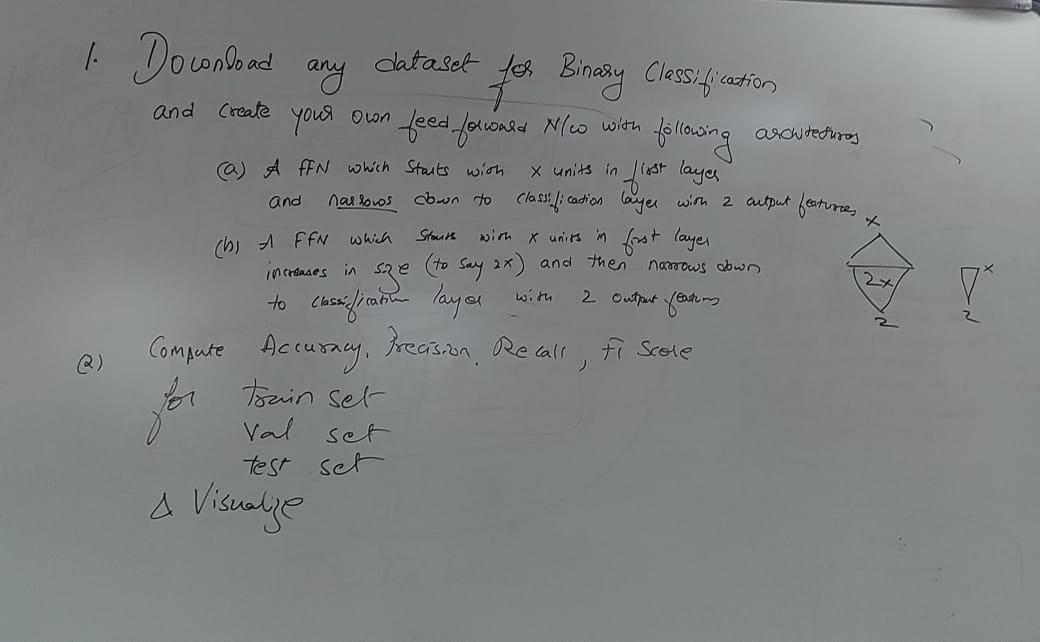 1. Download any dataset for Binary Classification
and create your own feed forward N/w with following architectures
(a) A FFN which starts with x units in first layer
and narrows down to classification layer with 2 output features
(b) A FFN which starts with x units in first layer
increases in size (to say 2x) and then narrows down
to classification layer with 2 output features
x
2x
2
x
2
(2) Compute Accuracy, Precision, Recall, F1 Score
for train set
val set
test set
& Visualize